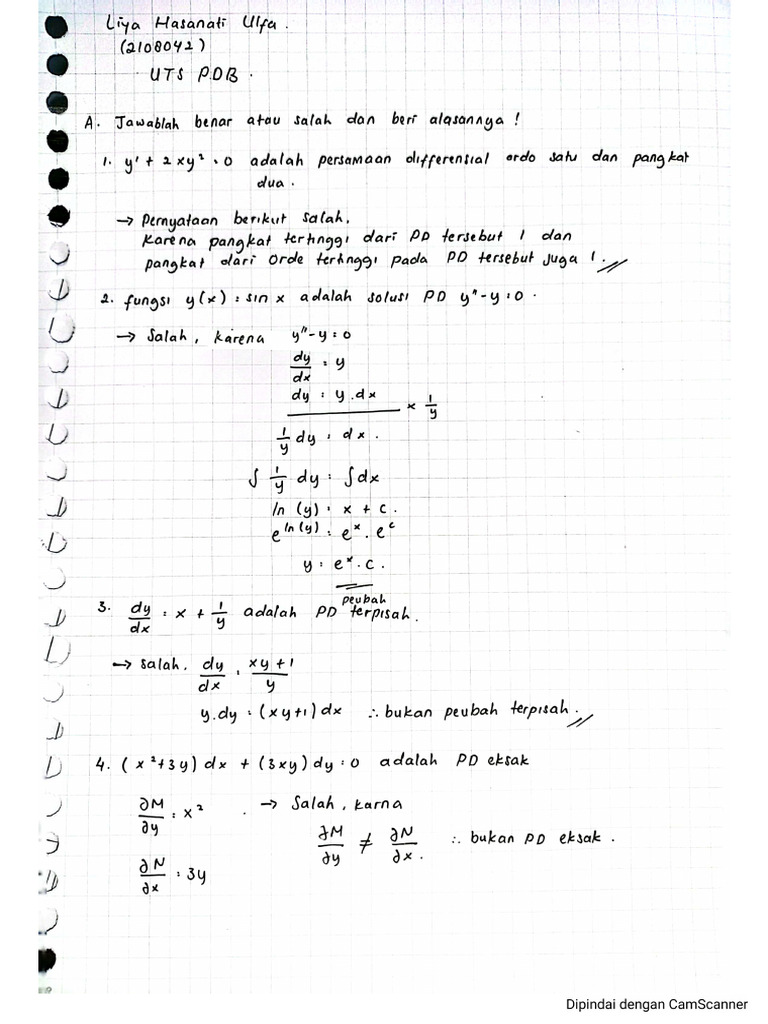 Liya Hasanati Ulfa.
(2108042)
UTS PDB.
A. Jawablah benar atau salah dan beri alasannya!
1. y' + 2xy² = 0 adalah persamaan differensial ordo satu dan pangkat
dua.
→ Pernyataan berikut salah.
Karena pangkat tertinggi dari PD tersebut 1 dan
pangkat dari Orde tertinggi pada PD tersebut juga 1.
2. fungsi y(x) = sin x adalah solusi PD y" - y = 0.
→ Salah, karena y" - y = 0
dy/dx = y
dy = y.dx
× 1/y
1/y dy = dx.
∫ 1/y dy = ∫dx
ln (y) = x + c.
e^ln(y) = e^x . e^c
y = e^x . c.
3. dy/dx = x + 1/y adalah PD peubah terpisah.
→ Salah. dy/dx = xy+1/y
y.dy = (xy+1) dx ∴ bukan peubah terpisah.
4. (x²+3y) dx + (3xy) dy = 0 adalah PD eksak
∂M/∂y = x² → Salah, karna
∂M/∂y ≠ ∂N/∂x. ∴ bukan PD eksak.
∂N/∂x = 3y
Dipindai dengan CamScanner